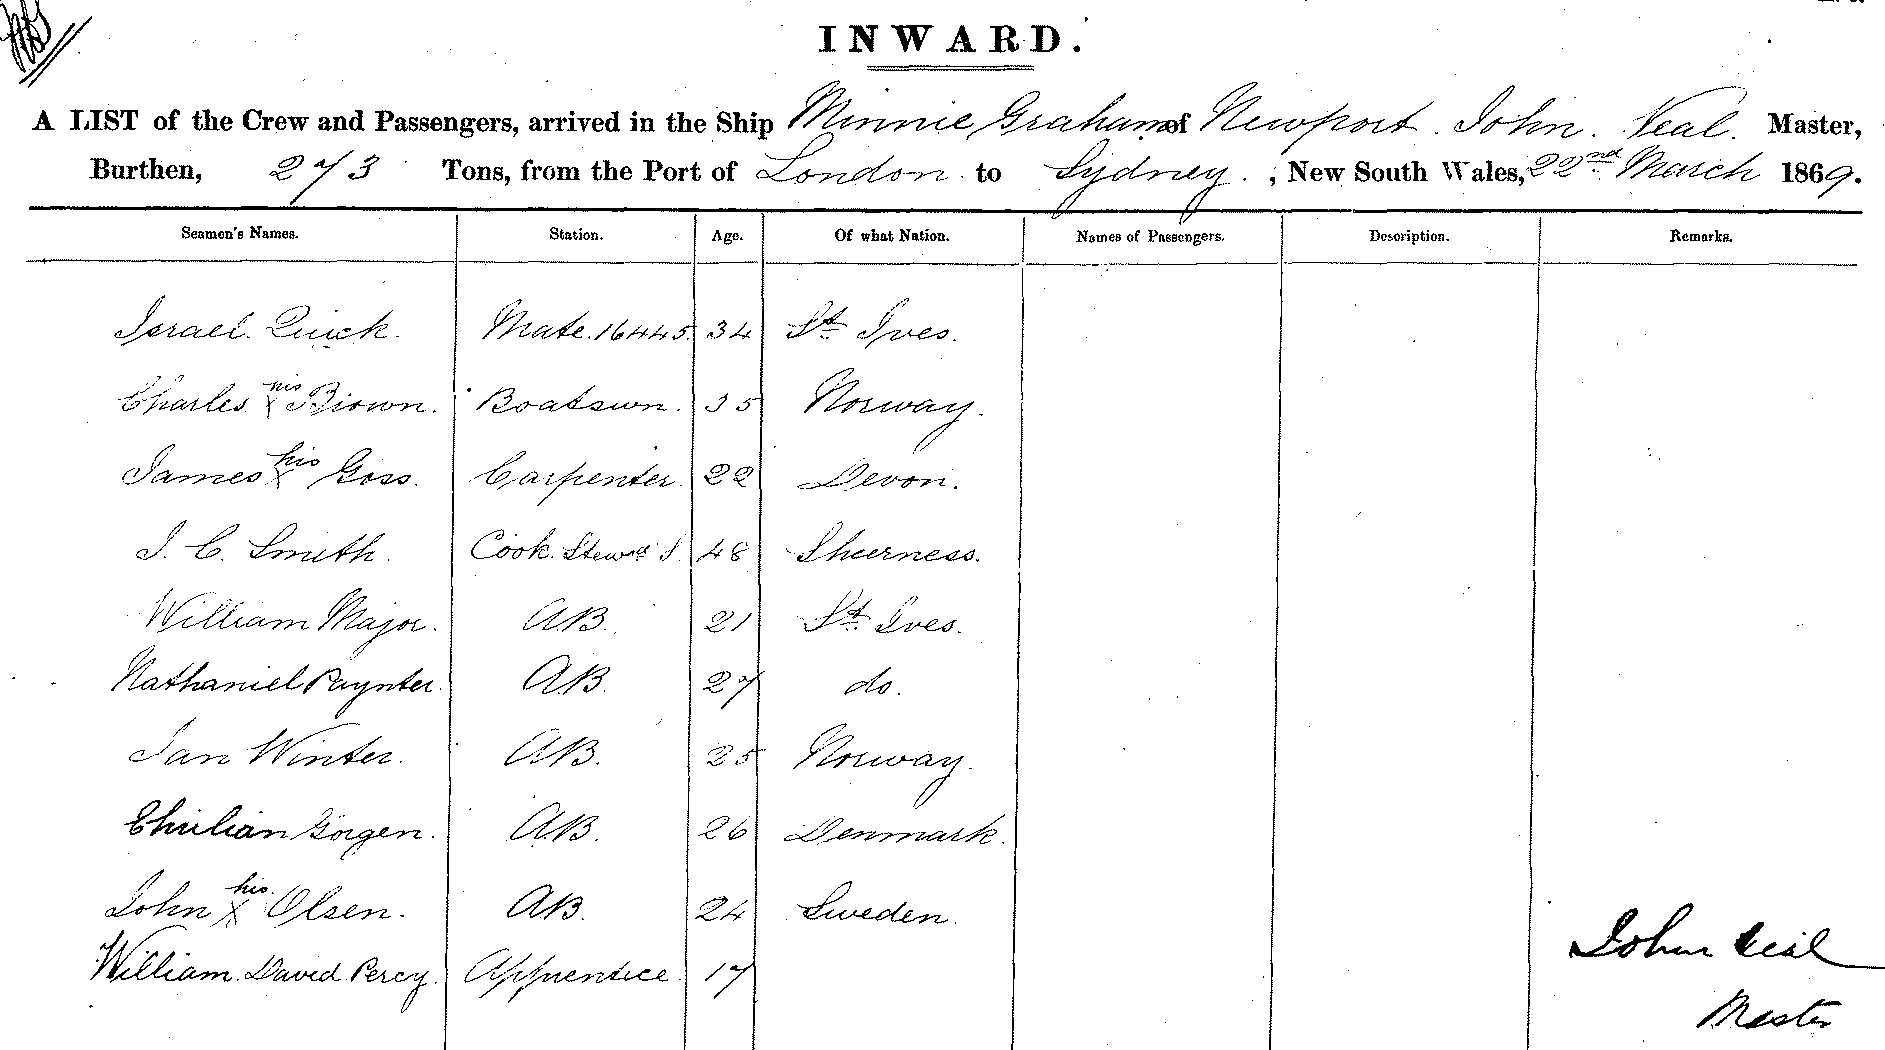 INWARD.
A LIST of the Crew and Passengers, arrived in the Ship Minnie Graham of Newport. John. Neal. Master,
Burthen, 273 Tons, from the Port of London to Sydney. , New South Wales, 22nd March 1869.
Seamen's Names. Station. Age. Of what Nation. Names of Passengers. Description. Remarks.
Israel. Quick. Mate. 16445. 34 St Ives.
Charles his X Brown. Boatswn. 35 Norway.
James his X Goss. Carpenter. 22 Devon.
J. C. Smith. Cook. Stewd S. 48 Sheerness.
William Major. AB. 21 St Ives.
Nathaniel Paynter. AB. 27 do.
Jan Winter. AB. 25 Norway.
Görgen. AB. 26 Denmark.
John his X Olsen. AB. 24 Sweden.
William. David Percy. Apprentice. 17
John Neal
Master